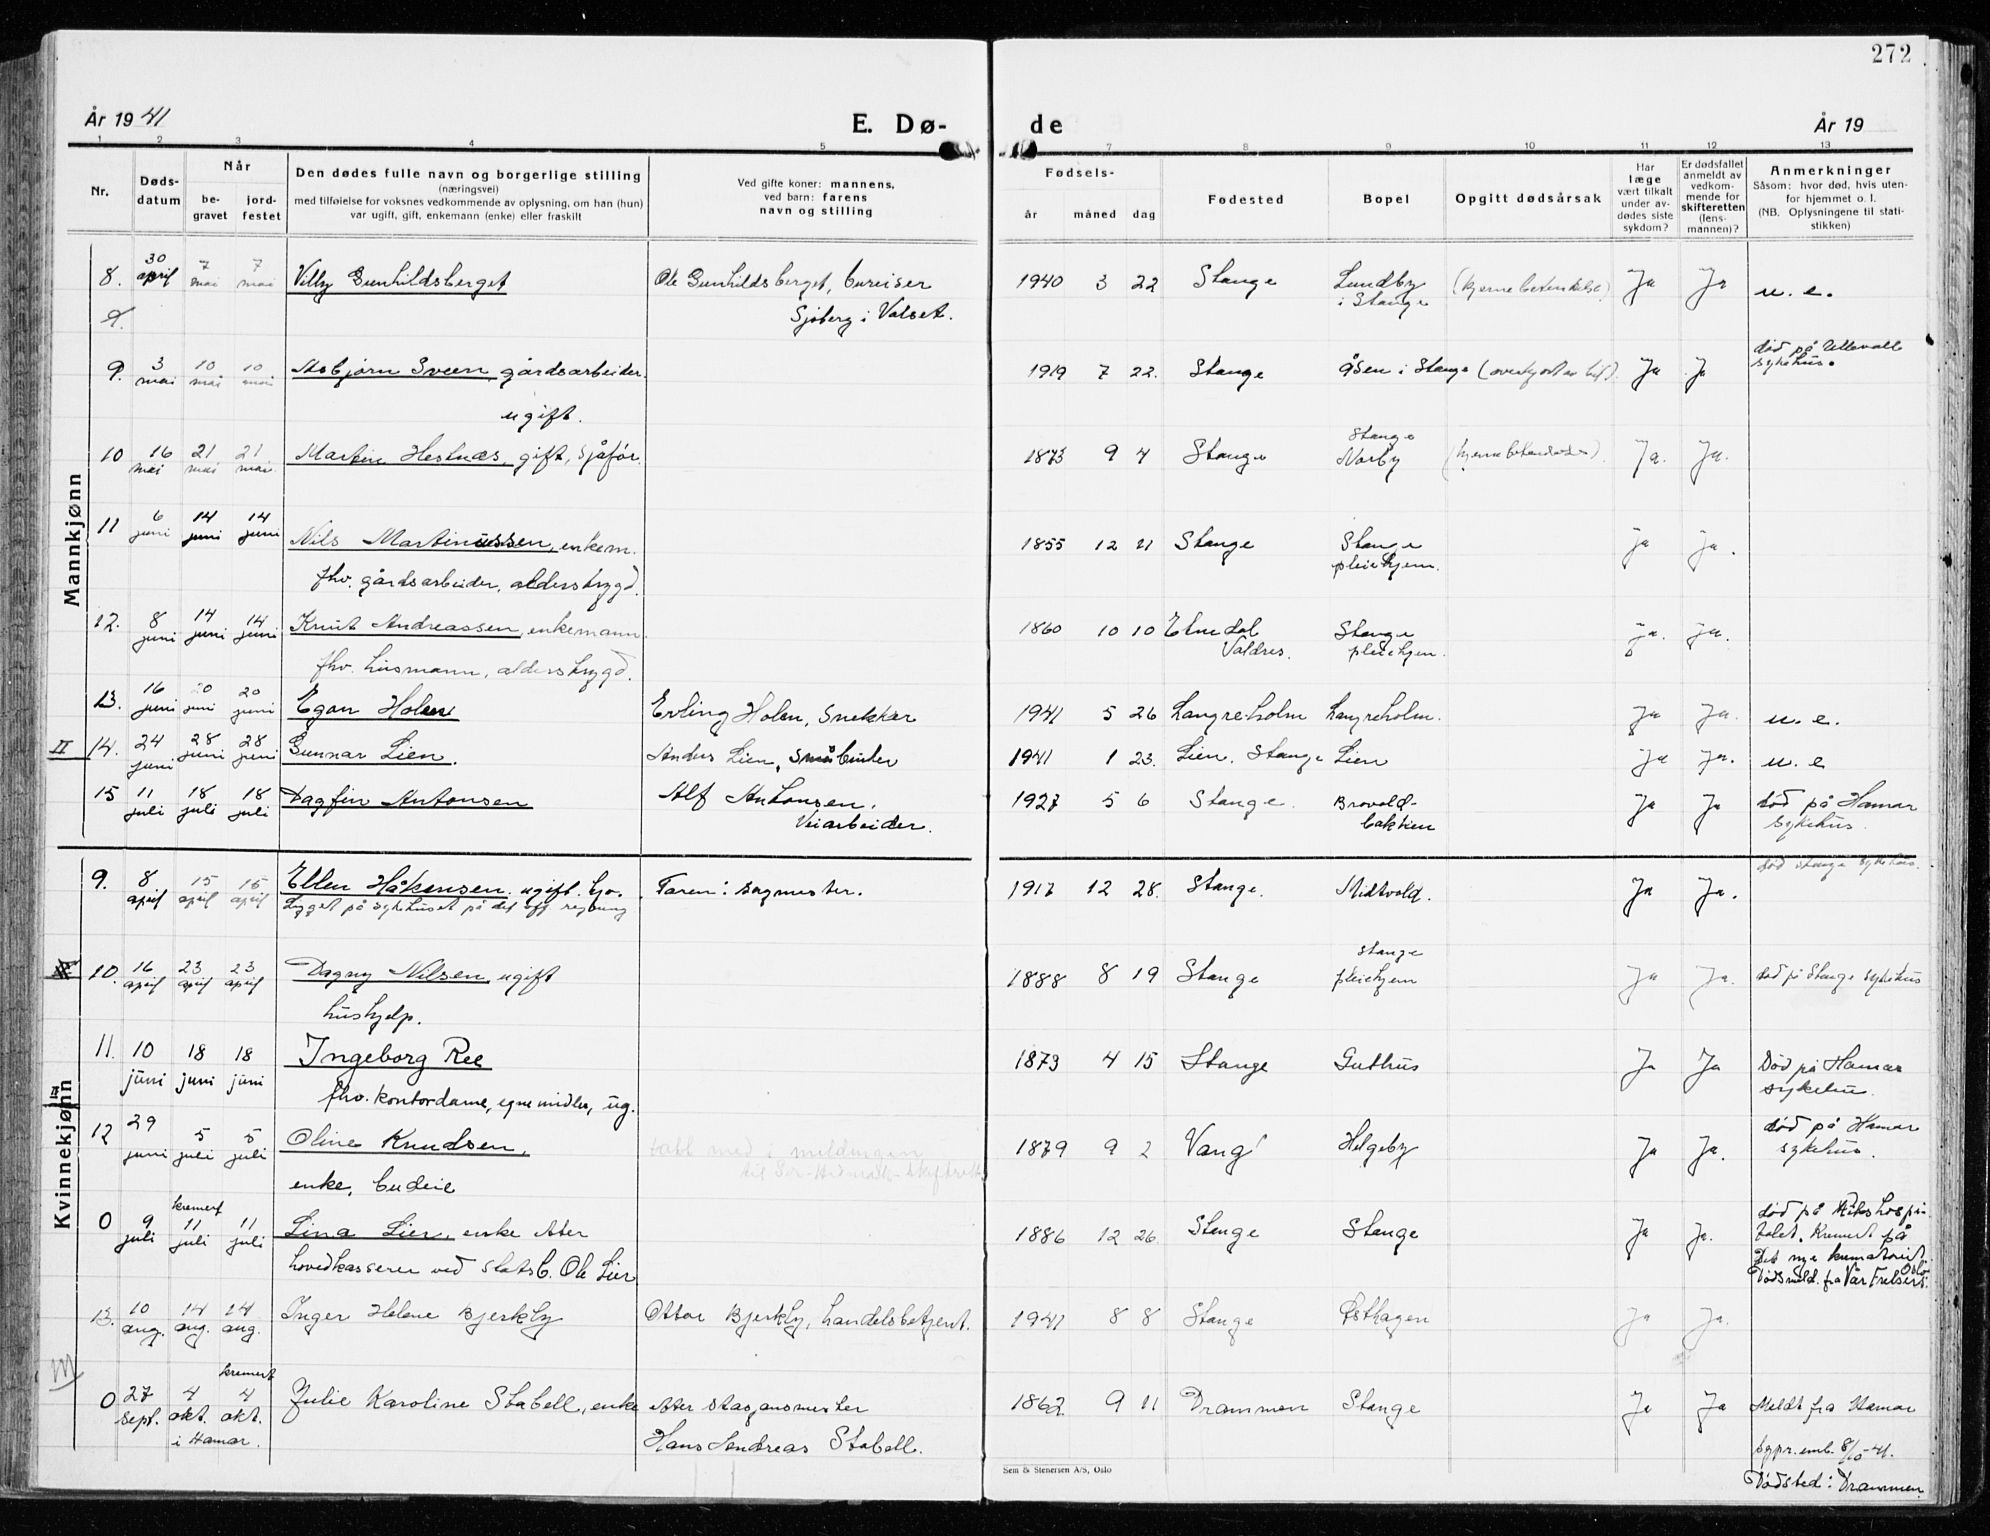 272
År 1941
E. Dø-
de
År 19
1 2 3 4 5 7 8 9 10 11 12 13
Nr.
Døds-
datum
Når
be-
gravet
jord-
festet
Den dødes fulle navn og borgerlige stilling
(næringsvei)
med tilføielse for voksnes vedkommende av oplysning, om han (hun)
var ugift, gift, enkemann (enke) eller fraskilt
Ved gifte koner: mannens,
ved barn: farens
navn og stilling
Fødsels-
år måned dag
Fødested
Bopel
Opgitt dødsårsak
Har
læge
vært tilkalt
under av-
dødes siste
sykdom?
Er dødsfallet
anmeldt av
vedkom-
mende for
skifteretten
(lens-
mannen)?
Anmerkninger
Såsom: hvor død, hvis uten-
for hjemmet o. l.
(NB. Oplysningene til stati-
stikken)
Mannkjønn
8. 30 april 7 mai 7 mai Villy Gunhildsberget Ole Gunhildsberget, bureiser 1940 3 22 Stange Lundby Ja Ja u. e.
i Stange
Sjøberg i Valset.
9. 3 mai 10 mai 10 mai Asbjørn Sveen, gårdsarbeider. 1919 7 22. Stange Åsen i Stange Ja Ja død på Ullevall
sykehus.
ugift.
10 16 mai 21 mai 21 mai Martin Hestnæs, gift, sjåfør. 1873 9 4 Stange Stange
Norby Ja. Ja.
11 6 juni 14 juni 14 juni Nils Martinussen, enkem. 1855 12 11 Stange Stange
pleiehjem. Ja Ja.
fhv. gårdsarbeider, alderstrygd.
12. 8 juni 14 juni 14 juni Knut Andreassen, enkemann. 1860 10 10 Etnedal Stange
Valdres. pleiehjem. Ja. Ja.
fhv. husmann, alderstrygd.
13. 16 juni 20 juni 20 juni Egon Holen Erling Holen, snekker 1941 5 26 Langreholm Langreholm. Ja Ja. u. e.
II 14. 24 juni 28 juni 28 juni Gunnar Lien. Anders Lien, småbruker 1941 1 23. Lien. Stange Lien Ja Ja. u. e
15 11 juli 18 juli 18 juli Dagfin Antonsen Alf Antonsen, 1927 5 6 Stange. Brovold-
bakken Ja Ja død på Hamar
sykehus.
Veiarbeider.
Kvinnekjønn
9. 8 april 15 april 15 april Ellen Håkensen, ugift. Faren: sagmester. 1917 12 28. Stange. Midtvold. Ja Ja. død Stange sykehus.
Ligget på sykehuset på det off regning
10. 16 april 23 april 23 april Dagny Nilsen, ugift 1888 8 19 Stange Stange
pleiehjem Ja Ja. død på Stange sykehus
hushjelp.
11. 10 juni 18 juni 18 juni Ingeborg Ree 1873 4 15 Stange Guthus Ja Ja Død på Hamar
sykehus.
fhv. kontordame, egne midler, ug.
III
12 29 juni 5 juli 5 juli Oline Knudsen, tatt med i meldingen 1879 9 2 Vang Helgeby Ja Ja. død på Hamar
sykehus.
enke, budeie
0 9 juli kremert 11 juli 11 juli Lina Lier, enke etter 1886 12 26. Stange Stange Ja Ja. død på Rikshospi-
talet. Kremert på
Det nye krematoriet.
Oslo
Dødsmeld. fra Vår Frelsers.
hovedkasserer ved statsb. Ole Lier
13. 10 aug. 14 aug. 14 aug. Inger Helene Bjerkly Ottar Bjerkly, handelsbetjent. 1941 8 8 Stange Østhagen Ja Ja.
0 27 sept. 4 okt. kremert 4 okt. Julie Karoline Stabell, enke etter stasjonsmester 1862 9 11 Drammen Stange Ja Ja Meldt fra Hamar
i Hamar.
Hans Andreas Stabell.
sgpr. emb. 8/10-41.
Dødsted: Drammen.
Sem & Stenersen A/S, Oslo